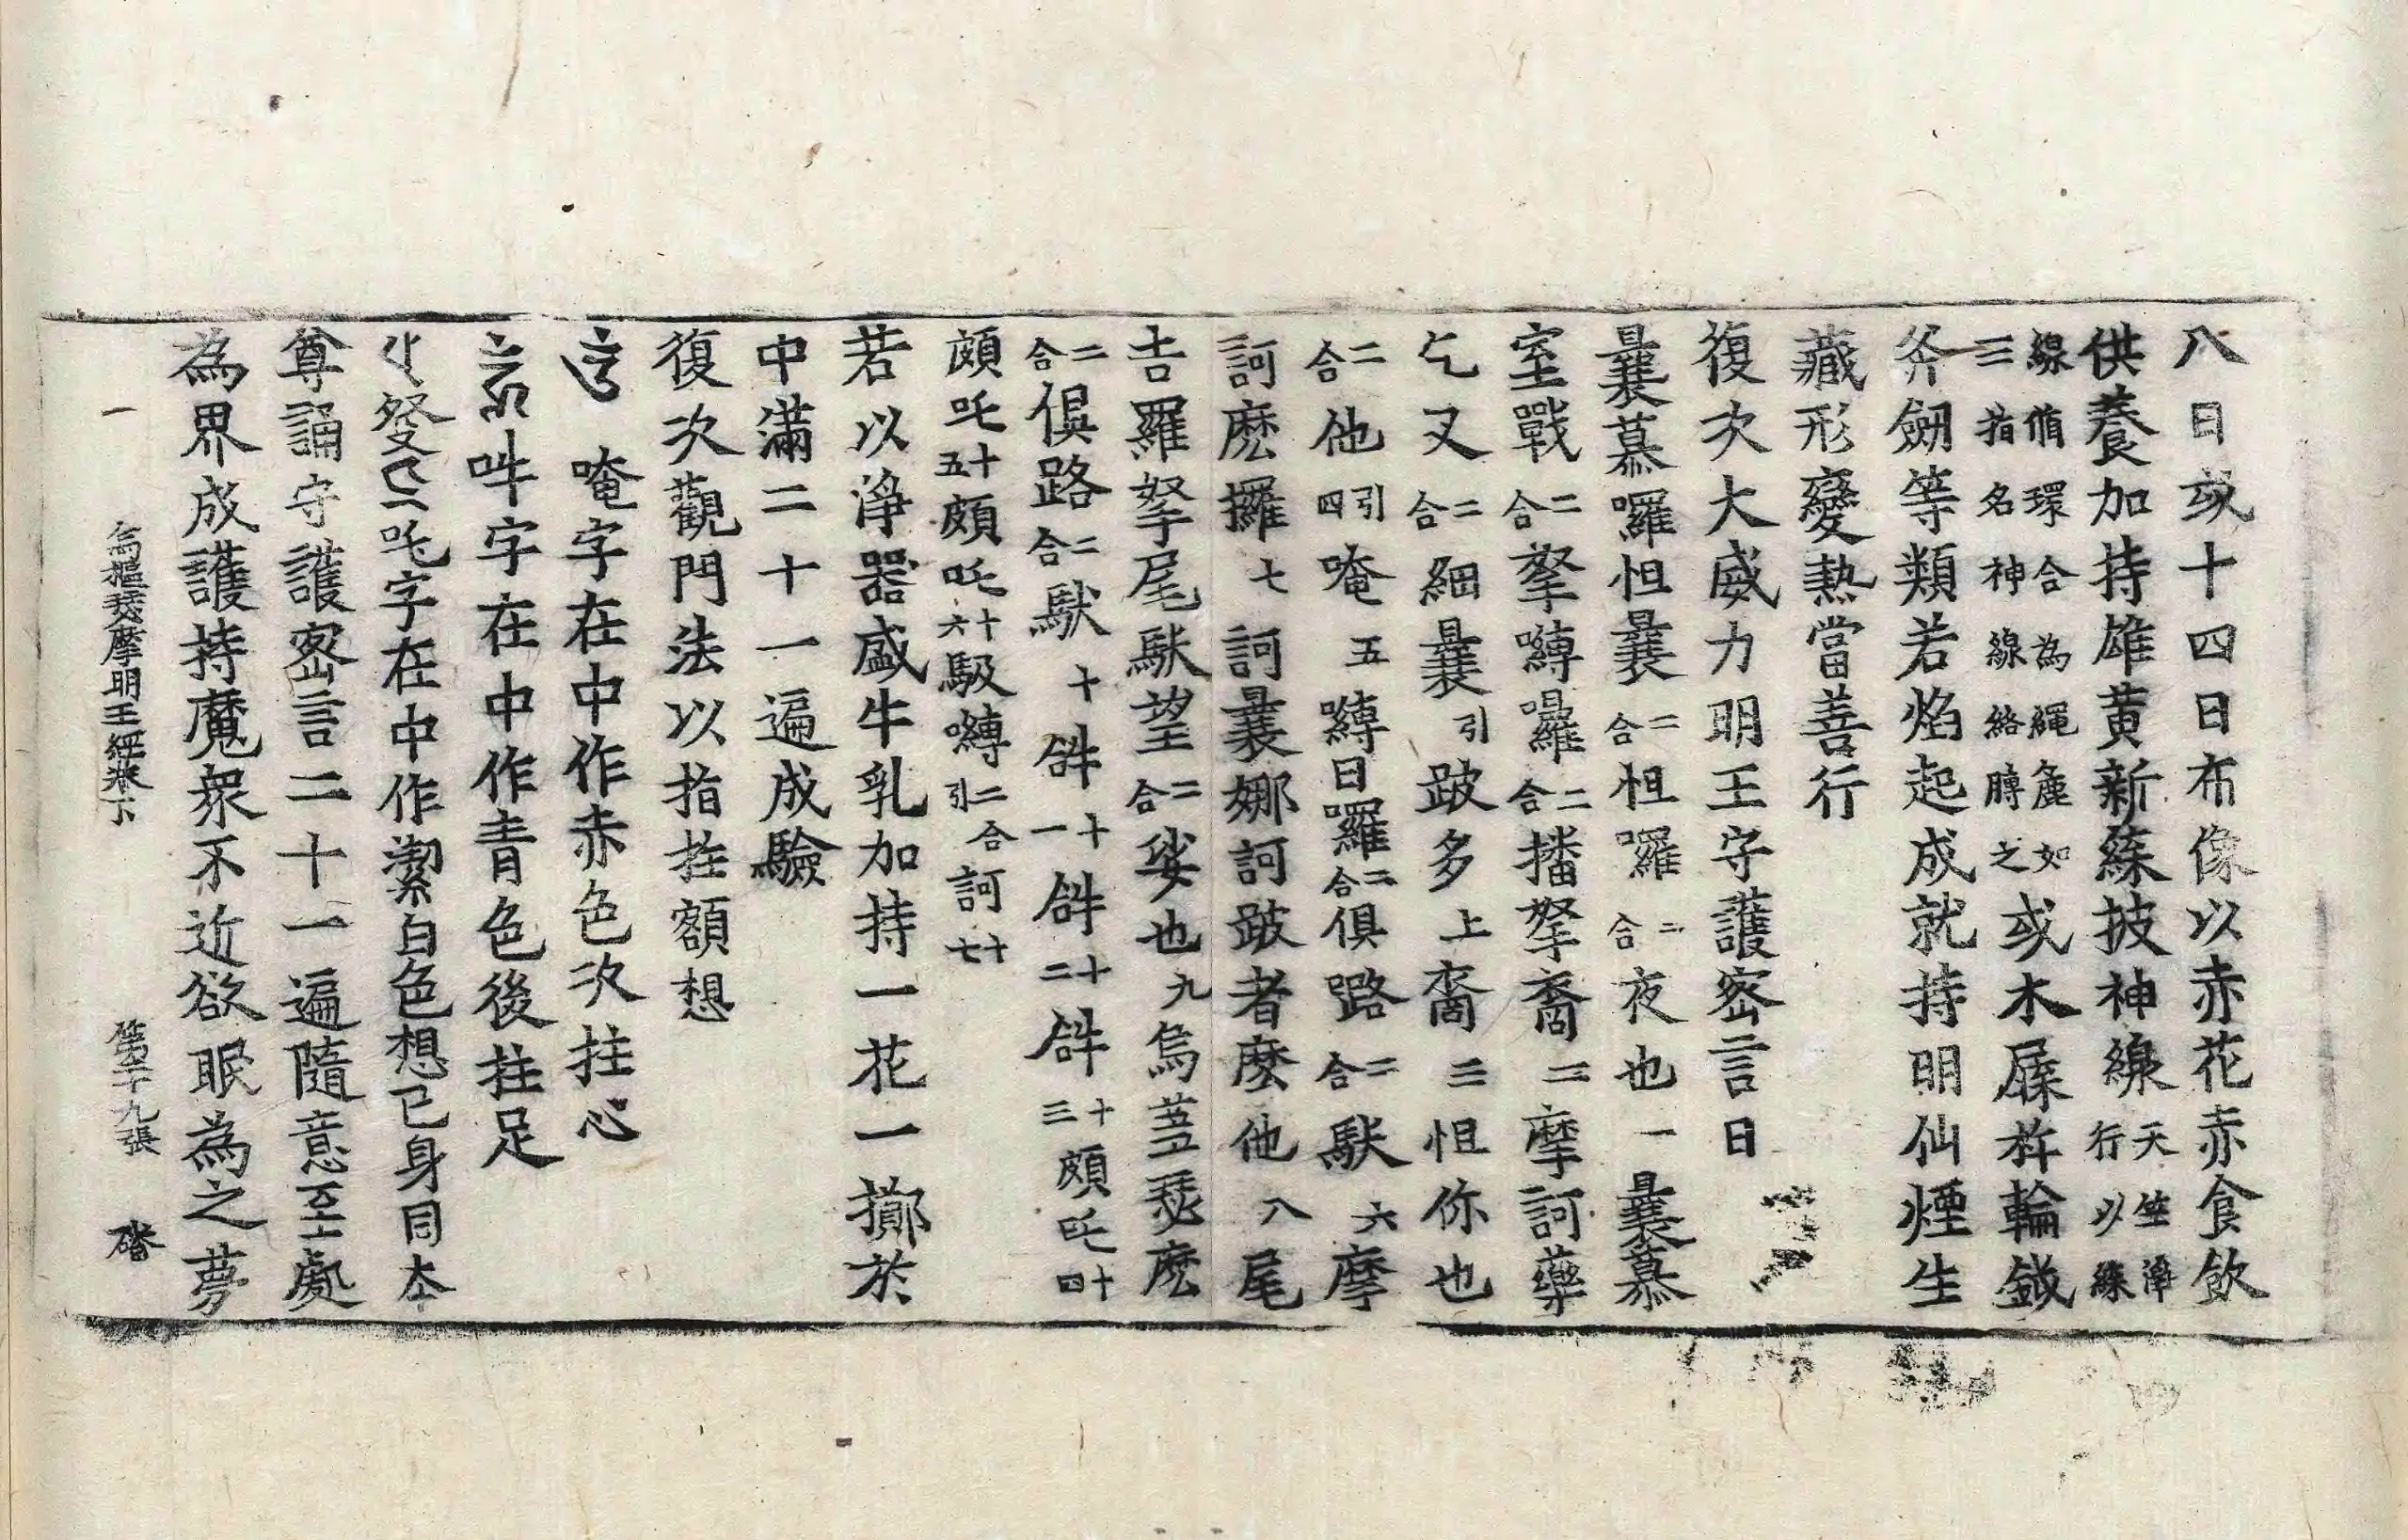 八日或十四日布像以赤花赤食飲
供養加持雄黃新蘇披神線天竺淨行以線
線脩環合為繩麁如三指名神線絡膊之或木屧柞輪鉞
斧劒等類若焰起成就持明仙煙生
藏形變熱當善行
復次大威力明王守護密言曰
曩慕囉怛曩二合怛囉二合夜也一曩慕
室戰二合拏嚩囉二合播拏裔二摩訶藥
乞叉二合細曩引跛多上裔三怛你也
二合他引四唵五嚩日囉二合俱路二合馱六摩
訶麽攞七訶曩娜訶跛者麽他八尾
吉羅拏尾馱望二合娑也九烏蒭瑟麽
二合俱路二合馱十𤙖十一𤙖十二𤙖十三頗吒十四
頗吒十五頗吒十六馺嚩二合引訶十七
若以淨器盛牛乳加持一花一擲於
中滿二十一遍成驗
復次觀門法以指拄額想
唵字在中作赤色次拄心
吽字在中作青色後拄足
發吒字在中作潔白色想已身同本
尊誦守護密言二十一遍隨意至處
為界成護持魔衆不近欲眠為之夢
一 烏樞瑟摩明王經卷下 第二十九張 礎